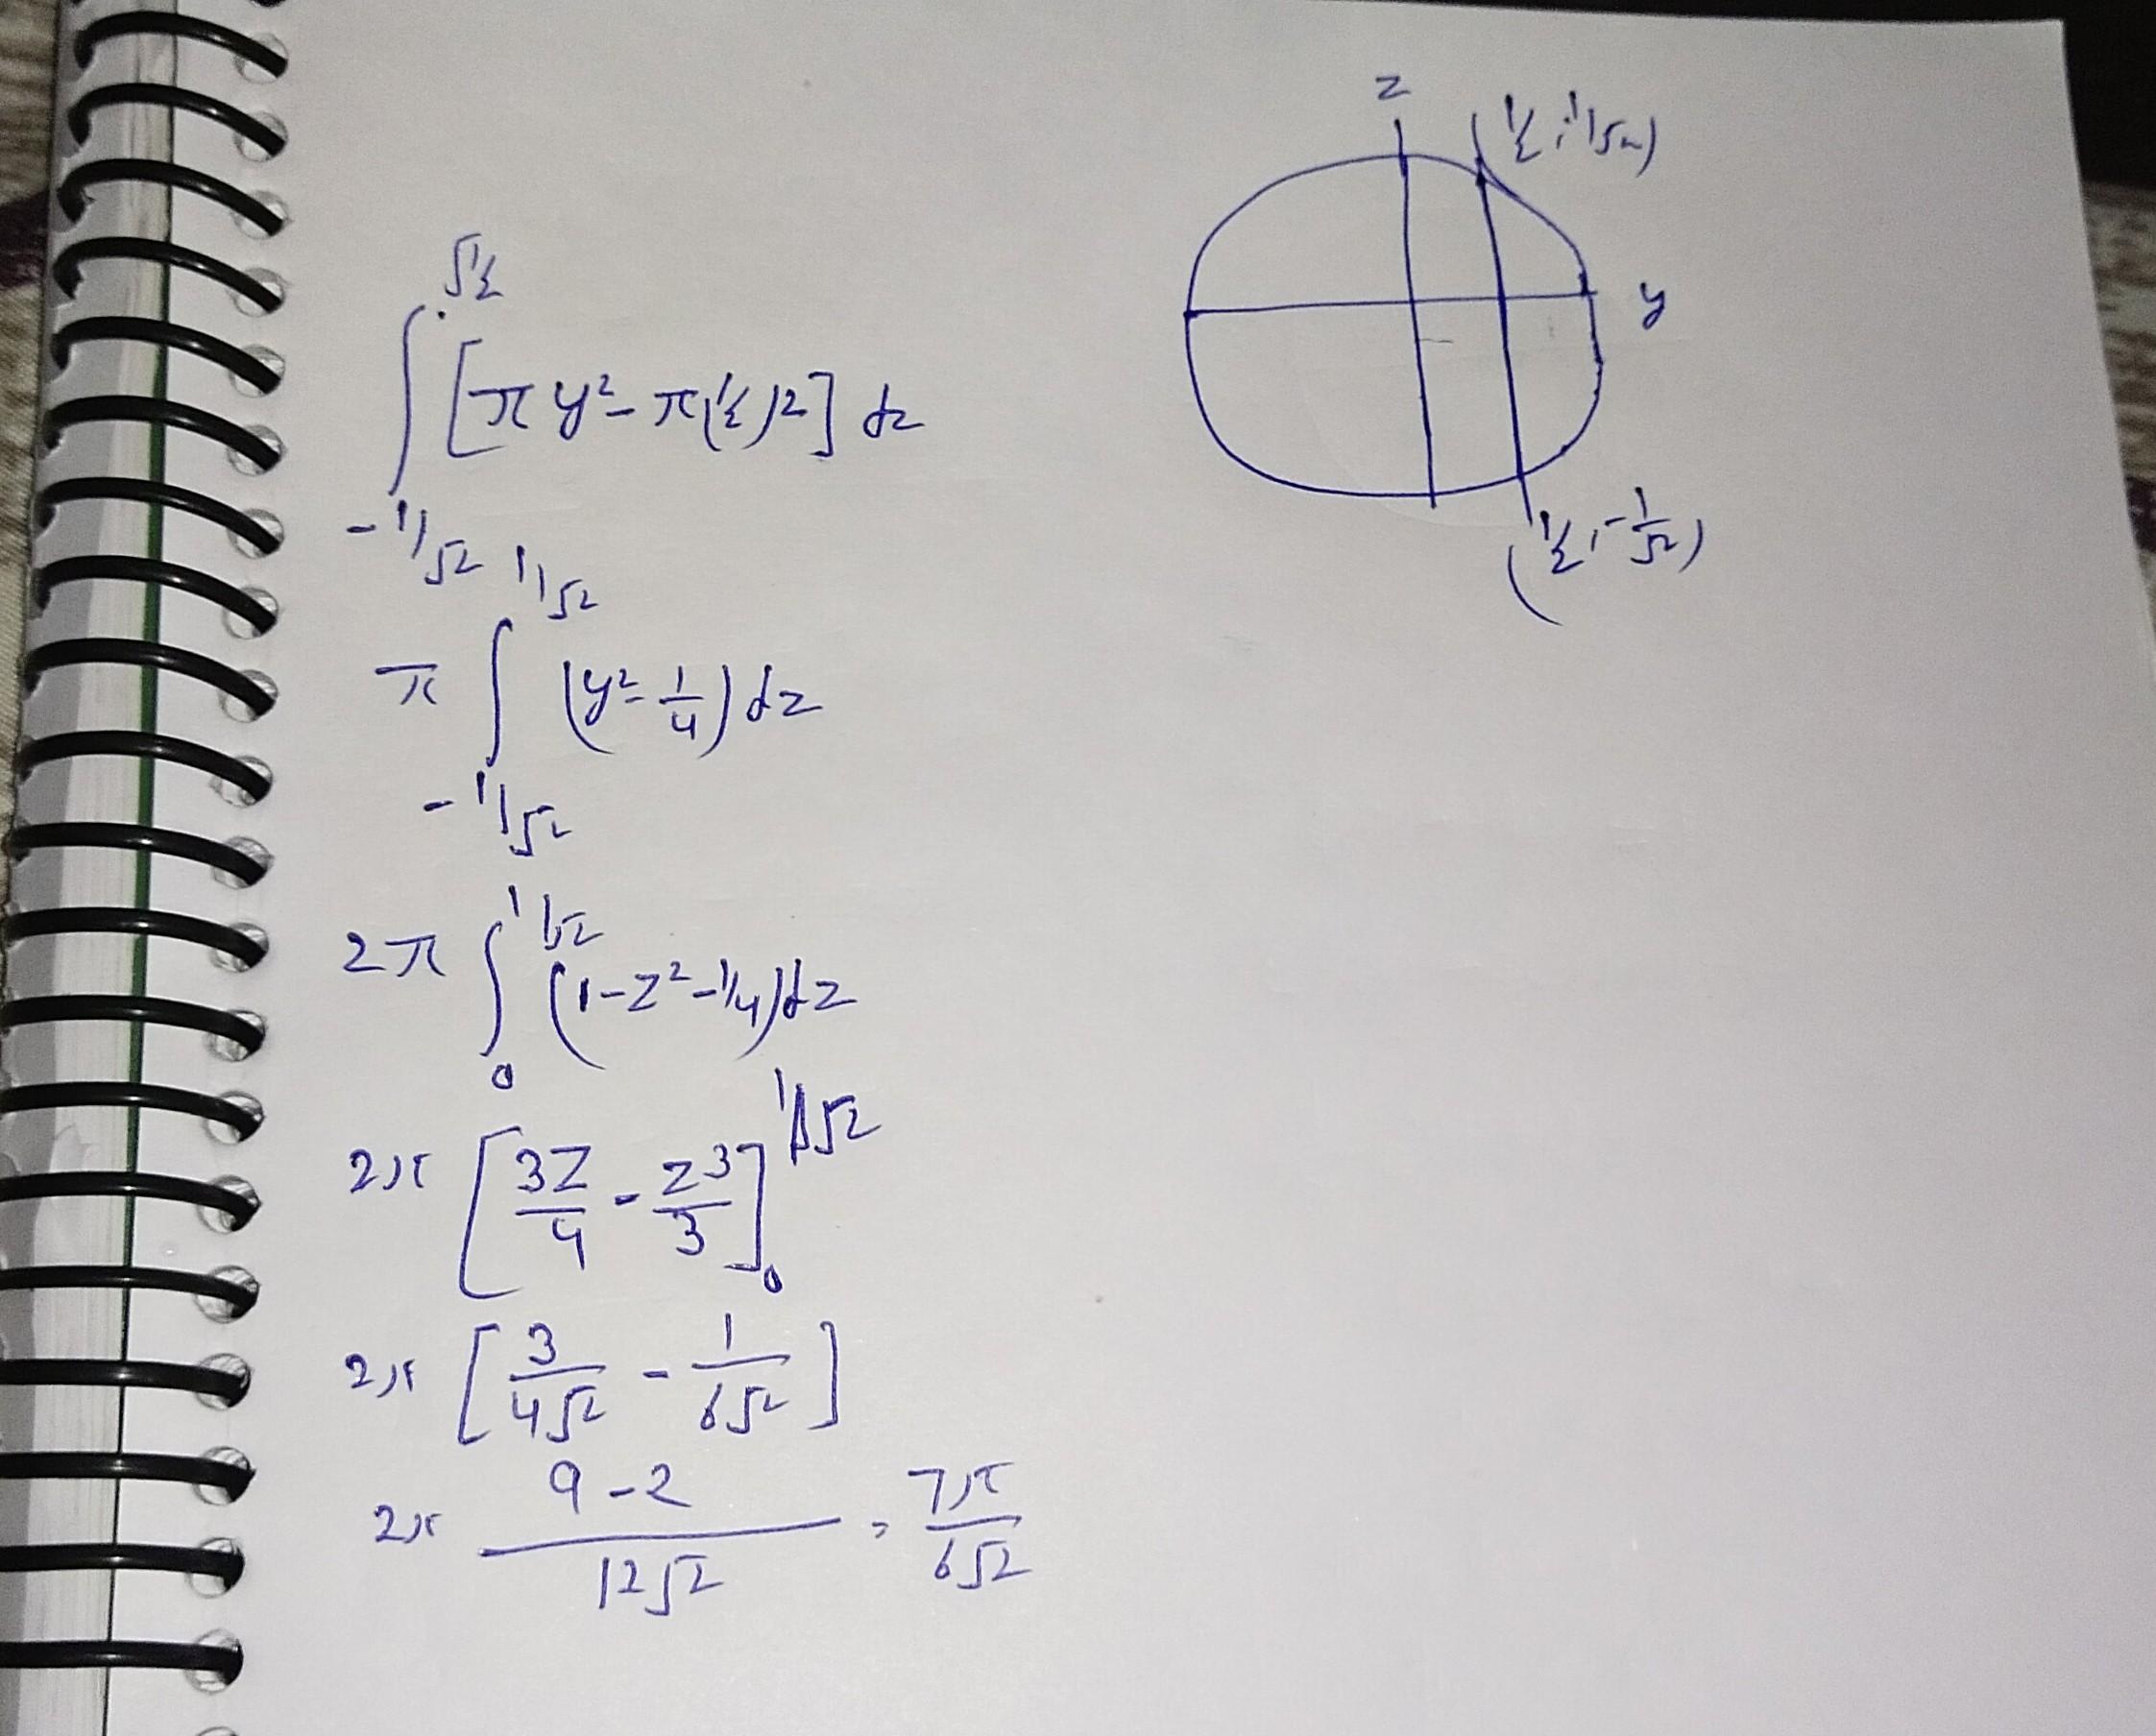 z
(½, 1/√2)
y
(½, -1/√2)
∫_{-1/√2}^{√½} [πy² - π(½)²] dz
π ∫_{-1/√2}^{1/√2} (y² - 1/4) dz
2π ∫_0^{1/√2} (1 - z² - 1/4) dz
2π [3z/4 - z³/3]_0^{1/√2}
2π [3/(4√2) - 1/(6√2)]
2π (9 - 2)/(12√2) = 7π/(6√2)